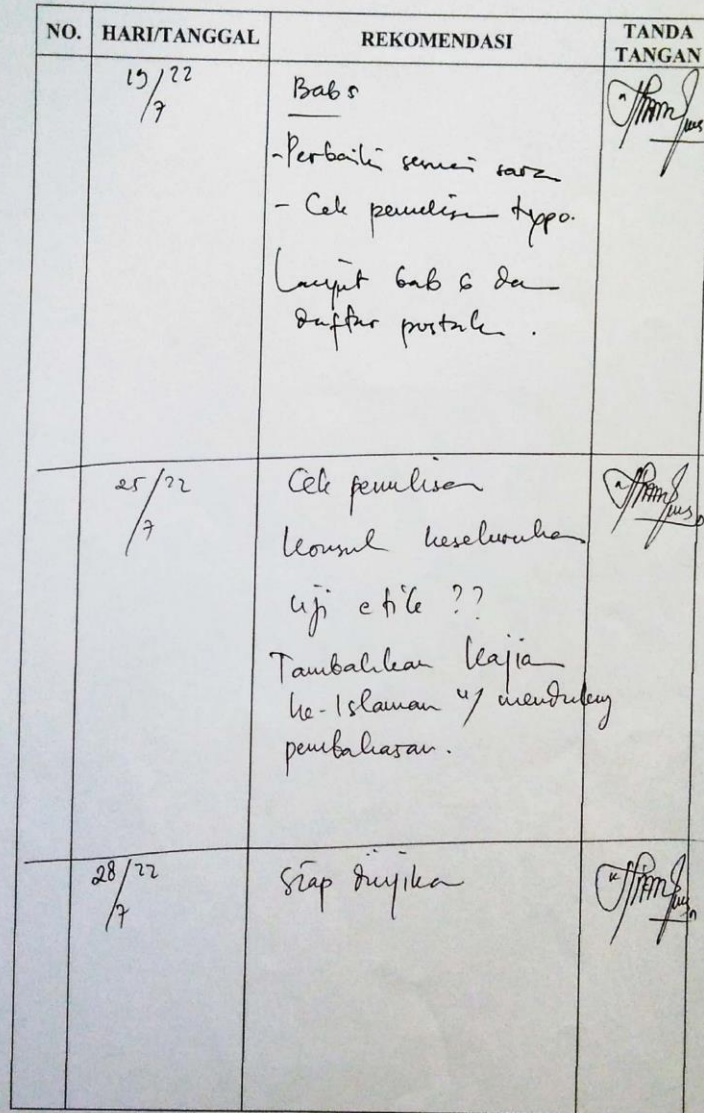 NO. HARI/TANGGAL REKOMENDASI TANDA TANGAN
19/7 22
Bab 5
- Perbaiki sesuai saran
- Cek penulisan typo.
Lanjut bab 6 dan
daftar pustaka.
25/7 22
Cek penulisan
Konsul keseluruhan
Uji etik ??
Tambahkan kajian
ke-Islaman u/ mendukung
pembahasan.
28/7 22
Siap diujikan